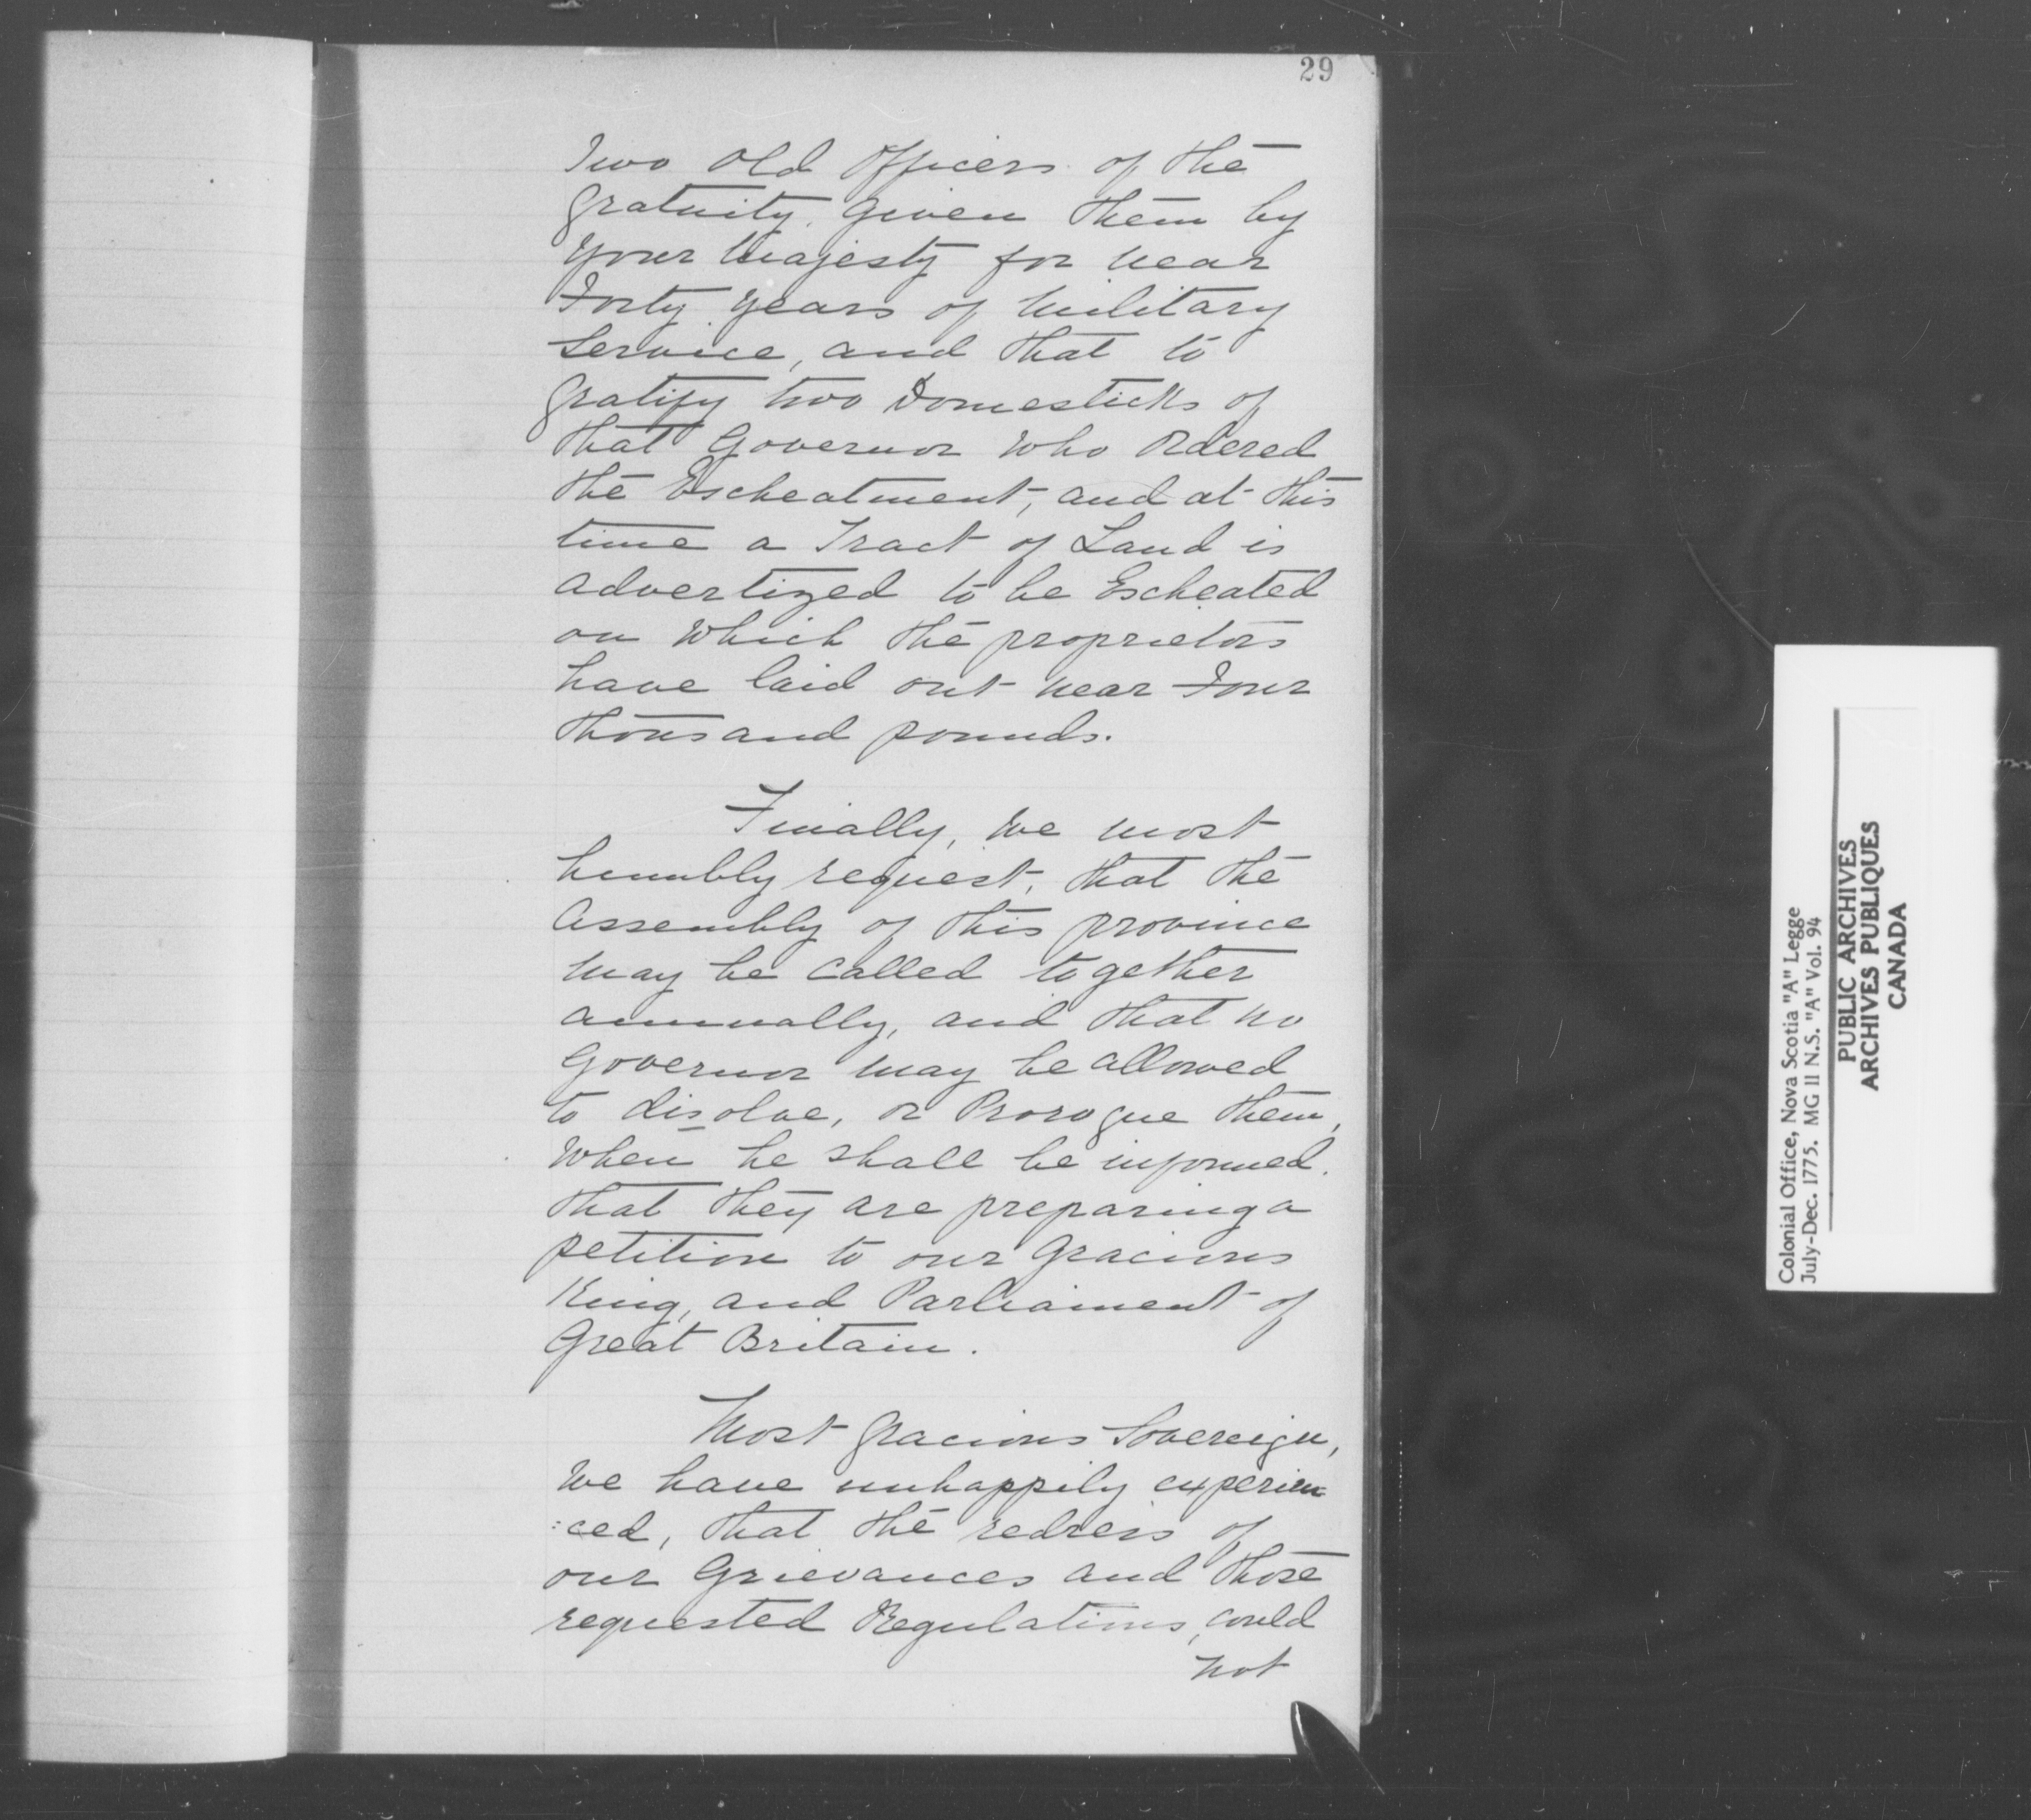 29
Two Old Officers of the
Gratuity, given them by
Your Majesty for near
Forty Years of Military
Service, and that to
gratify two Domesticks of
that Governor who Ordered
the Escheatment, and at this
time a Tract of Land is
advertized to be Escheated
on which the proprietors
have laid out near Four
thousand pounds.
Finally, We most
humbly request, that the
Assembly of this province
may be called together
annually, and that no
Governor may be allowed
to disolve, or Prorogue them,
When he shall be informed
that they are preparing a
petition to our Gracious
King, and Parliament of
Great Britain.
Most Gracious Sovereign,
We have unhappily experien
:ced, that the redress of
our Grievances and those
requested Regulations, could
not
Colonial Office, Nova Scotia "A" Legge
July-Dec. 1775. MG II N.S. "A" Vol. 94
PUBLIC ARCHIVES
ARCHIVES PUBLIQUES
CANADA